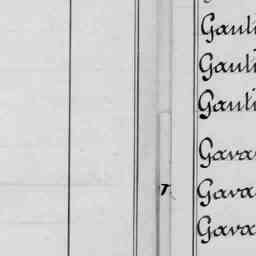 Gauli
Gauli
Gauti
Gava
T. Gava
Gava